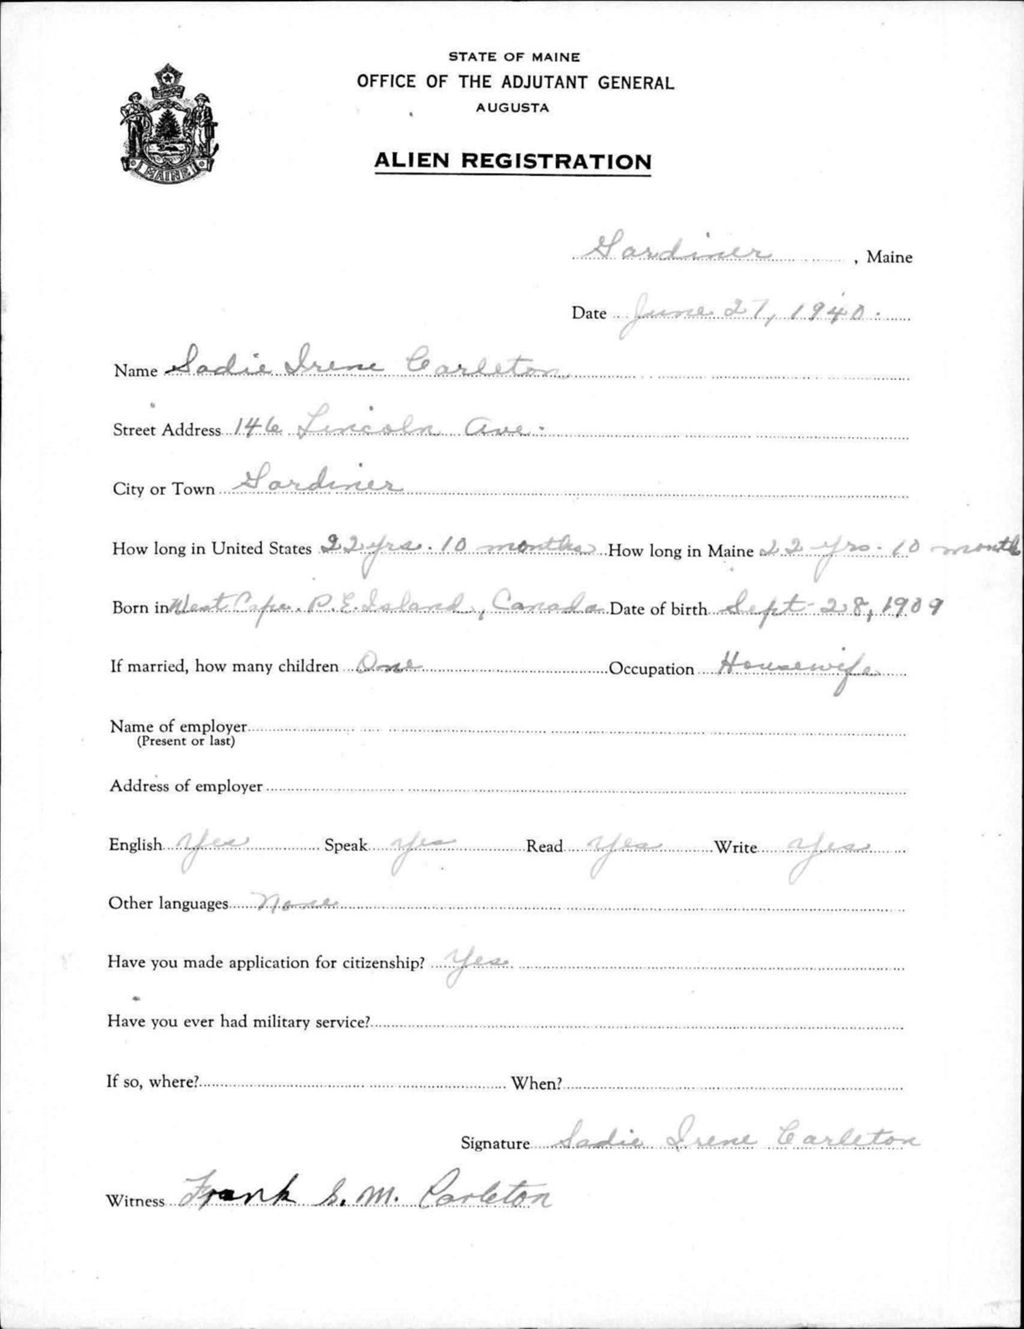 STATE OF MAINE
OFFICE OF THE ADJUTANT GENERAL
AUGUSTA
ALIEN REGISTRATION
MAINE
Gardiner, Maine
Date June 27, 1940.
Name Sadie Irene Carleton
Street Address 146 Lincoln Ave.
City or Town Gardiner
How long in United States 22 yrs. 10 months How long in Maine 22 yrs. 10 month
Born in West Cape. P.E. Island, Canada Date of birth Sept-28, 1909
If married, how many children One Occupation Housewife
Name of employer
(Present or last)
Address of employer
English Yes Speak yes Read Yes Write Yes
Other languages None
Have you made application for citizenship? Yes
Have you ever had military service?
If so, where? When?
Signature Sadie Irene Carleton
Witness Frank S. M. Carleton